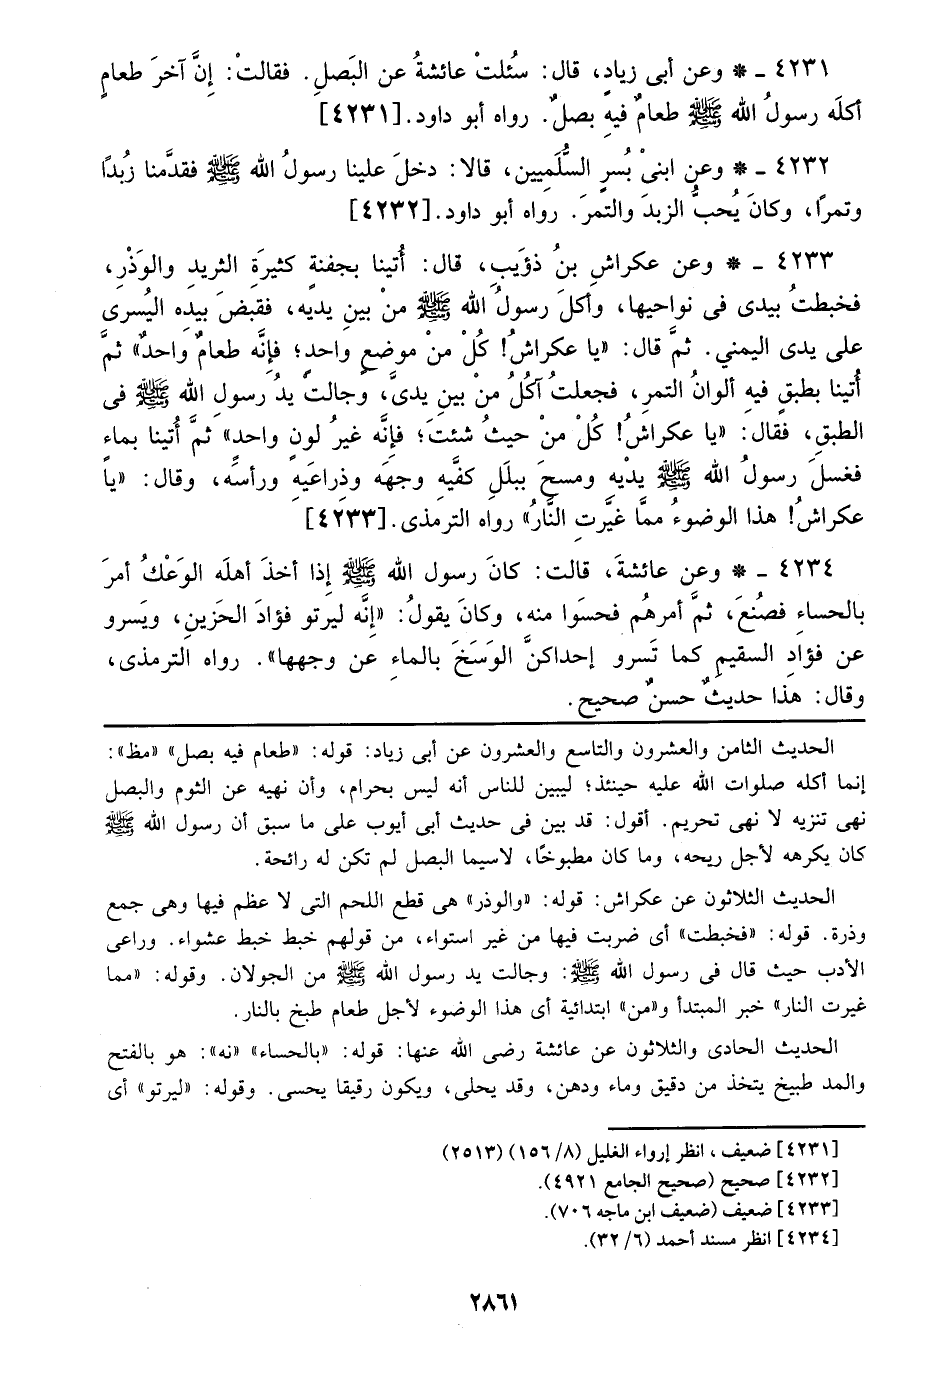 ٤٢٣١ ـ * وعن أبى زيادٍ، قال: سُئلتْ عائشةُ عن البَصلِ. فقالتْ: إِنَّ آخرَ طعامٍ
أكلَه رسولُ الله ﷺ طعامٌ فيهِ بصلٌ. رواه أبو داود.[٤٢٣١]
٤٢٣٢ ـ * وعن ابنىْ بُسرٍ السُّلَميين، قالا: دخلَ علينا رسولُ الله ﷺ فقدَّمنا زبُدًا
وتمرًا، وكانَ يُحبُّ الزبدَ والتمرَ. رواه أبو داود.[٤٢٣٢]
٤٢٣٣ ـ * وعن عكراشِ بنُ ذؤَيبِ، قال: أُتينا بجفنةٍ كثيرةِ الثريدِ والوَذْرِ،
فخبطتُ بيدى فى نواحيها، وأكلَ رسولُ الله ﷺ منْ بين يديه، فقبضَ بيدِه اليُسرى
على يدى اليمني. ثمَّ قال: «يا عكراشُ! كُلْ منْ موضعٍ واحدٍ؛ فإنَّه طعامٌ واحدٌ» ثمَّ
أُتينا بطبقٍ فيهِ ألوانُ التمرِ، فجعلتُ آكُلُ منْ بينِ يدىَّ، وجالتْ يدُ رسولِ الله ﷺ فى
الطبقِ، فقال: «يا عكراشُ! كُلْ منْ حيثُ شئتَ؛ فإنَّه غيرُ لونٍ واحدٍ» ثمَّ أُتينا بماء
فغسلَ رسولُ الله ﷺ يدْيهِ ومسحَ ببلَلِ كفَّيهِ وجهَه وذِراعَيهِ ورأسَه، وقال: «يا
عكراشُ! هذا الوضوءُ ممَّا غيَّرتِ النَّارُ» رواه الترمذى.[٤٢٣٣]
٤٢٣٤ ـ * وعن عائشةَ، قالت: كانَ رسول الله ﷺ إِذا أخذَ أهلَه الوَعْكُ أمرَ
بالحساءِ فصُنعَ، ثمَّ أمرهُم فحسَوا منه، وكانَ يقولُ: «إِنَّه ليرتو فؤادَ الحَزينِ، ويَسرو
عن فؤادِ السقيمِ كما تَسرو إحداكنَّ الوَسَخَ بالماءِ عن وجهها». رواه الترمذى،
وقال: هذا حديثٌ حسنٌ صحيح.
الحديث الثامن والعشرون والتاسع والعشرون عن أبى زياد: قوله: «طعام فيه بصل» «مظ»:
إنما أكله صلوات الله عليه حينئذ؛ ليبين للناس أنه ليس بحرام، وأن نهيه عن الثوم والبصل
نهى تنزيه لا نهى تحريم. أقول: قد بين فى حديث أبى أيوب على ما سبق أن رسول الله ﷺ
كان يكرهه لأجل ريحه، وما كان مطبوخًا، لاسيما البصل لم تكن له رائحة.
الحديث الثلاثون عن عكراش: قوله: «والوذر» هى قطع اللحم التى لا عظم فيها وهى جمع
وذرة. قوله: «فخبطت» أى ضربت فيها من غير استواء، من قولهم خبط خبط عشواء. وراعى
الأدب حيث قال فى رسول الله ﷺ: وجالت يد رسول الله ﷺ من الجولان. وقوله: «مما
غيرت النار» خبر المبتدأ و«من» ابتدائية أى هذا الوضوء لأجل طعام طبخ بالنار.
الحديث الحادى والثلاثون عن عائشة رضى الله عنها: قوله: «بالحساء» «نه»: هو بالفتح
والمد طبيخ يتخذ من دقيق وماء ودهن، وقد يحلى، ويكون رقيقا يحسى. وقوله: «ليرتو» أى
[٤٢٣١] ضعيف، انظر إرواء الغليل (٨/ ١٥٦) (٢٥١٣)
[٤٢٣٢] صحيح (صحيح الجامع ٤٩٢١).
[٤٢٣٣] ضعيف (ضعيف ابن ماجه ٧٠٦).
[٤٢٣٤] انظر مسند أحمد (٦/ ٣٢).
٢٨٦١